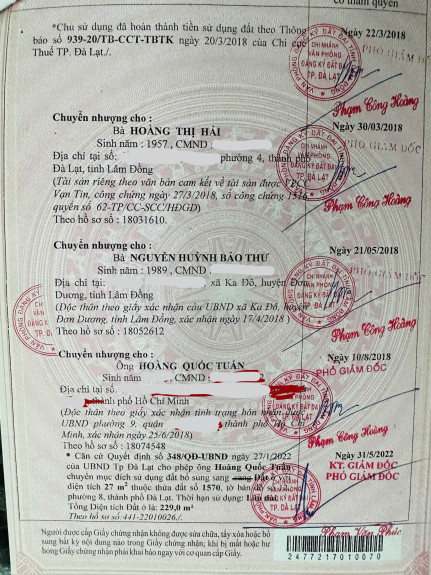 có thẩm quyền
*Chủ sử dụng đã hoàn thành tiền sử dụng đất theo Thông
báo số 939-20/TB-CCT-TBTK ngày 20/3/2018 của Chi cục
Thuế TP. Đà Lạt./.
Ngày 22/3/2018
PHÓ GIÁM ĐỐC
CHI NHÁNH
VĂN PHÒNG
ĐĂNG KÝ ĐẤT ĐAI
TP. ĐÀ LẠT
Phạm Công Hoàng
Chuyển nhượng cho :
Bà HOÀNG THỊ HẢI
Sinh năm : 1957, CMND :
Địa chỉ tại số: phường 4, thành phố
Đà Lạt, tỉnh Lâm Đồng
(Tài sản riêng theo văn bản cam kết về tài sản được VPCC
Vạn Tín, công chứng ngày 27/3/2018, số công chứng 1516
quyển số 62-TP/CC-SCC/HĐGD)
Theo hồ sơ số : 18031610.
Ngày 30/03/2018
PHÓ GIÁM ĐỐC
Phạm Công Hoàng
Chuyển nhượng cho :
Bà NGUYỄN HUỲNH BẢO THƯ
Sinh năm : 1989, CMND :
Địa chỉ tại : xã Ka Đô, huyện Đơn
Dương, tỉnh Lâm Đồng
(Độc thân theo giấy xác nhận của UBND xã Ka Đô, huyện
Đơn Dương, tỉnh Lâm Đồng, xác nhận ngày 17/4/2018)
Theo hồ sơ số : 18052612
Ngày 21/05/2018
PHÓ GIÁM ĐỐC
Phạm Công Hoàng
Chuyển nhượng cho :
Ông HOÀNG QUỐC TUẤN
Sinh năm , CMND :
Địa chỉ tại số.
thành phố Hồ Chí Minh
(Độc thân theo giấy xác nhận tình trạng hôn nhân được
UBND phường 9, quận thành phố Hồ Chí
Minh, xác nhận ngày 25/6/2018)
Theo hồ sơ số : 18074548
Ngày 10/8/2018
PHÓ GIÁM ĐỐC
Phạm Công Hoàng
* Căn cứ Quyết định số 348/QĐ-UBND ngày 27/1/2022
của UBND Tp Đà Lạt cho phép ông Hoàng Quốc Tuấn
chuyển mục đích sử dụng đất bổ sung sang Đất ở với
diện tích 27 m² thuộc thửa đất số 1570, tờ bản đồ số
phường 8, thành phố Đà Lạt. Thời hạn sử dụng: Lâu dài
Tổng Diện tích Đất ở là: 229,0 m²
Theo hồ sơ số: 441-22010026./.
Ngày 31/5/2022
KT. GIÁM ĐỐC
PHÓ GIÁM ĐỐC
Phạm Văn Phúc
Người được cấp Giấy chứng nhận không được sửa chữa, tẩy xóa hoặc bổ
sung bất kỳ nội dung nào trong Giấy chứng nhận; khi bị mất hoặc hư
hỏng Giấy chứng nhận phải khai báo ngay với cơ quan cấp Giấy.
2477217010070